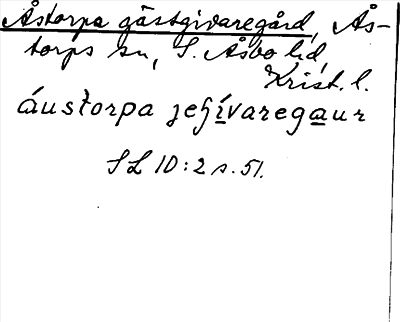 Åstorpa gästgivaregård, Ås-
torps sn, S. Åsbo hd,
Krist. l.
áustorpa jeʃívaregaur
SL 10:2 s. 51.